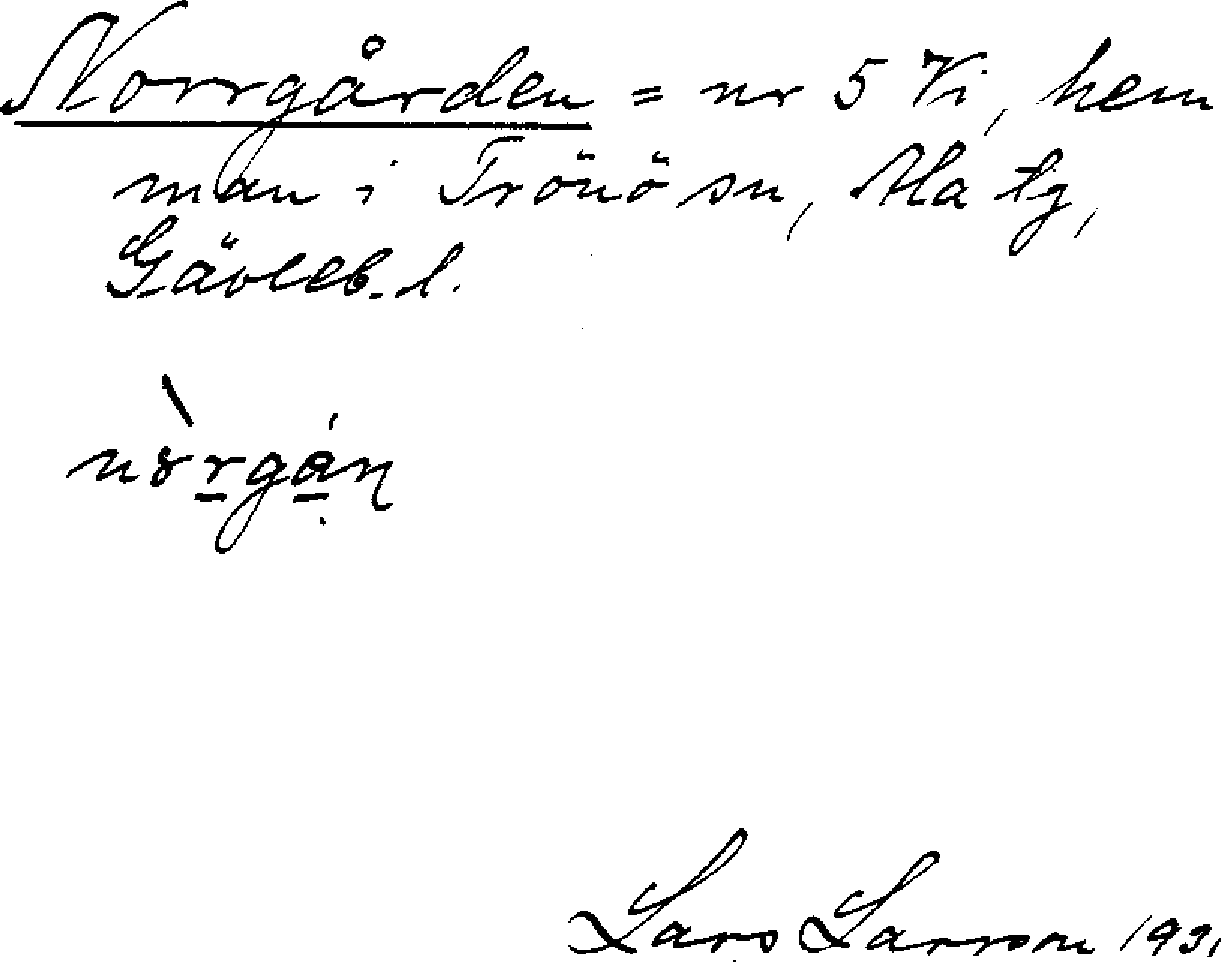 Norrgården = nr 5 Vi, hem
man i Trönö sn, Ala tg,
Gävleb. l.
Lars Larsson 1931